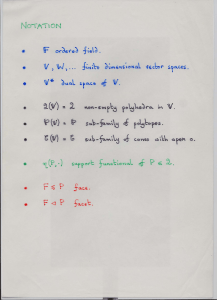 NOTATION
• F ordered field.
• V, W, ... finite dimensional vector spaces.
• V* dual space of V.
• (V) = non-empty polyhedra in V.
• P(V) = P sub-family of polytopes.
• (V) = sub-family of cones with apex o.
• (P,·) support functional of P ∈
• F ≤ P face.
• F P facet.